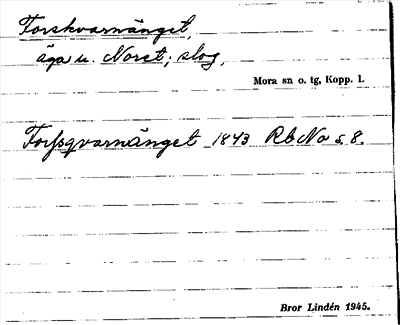 Forskvarnänget,
äga u. Noret; slog,
Mora sn o. tg, Kopp. l.
Forssqvarnänget 1843 Rb No s. 8.
Bror Lindén 1945.